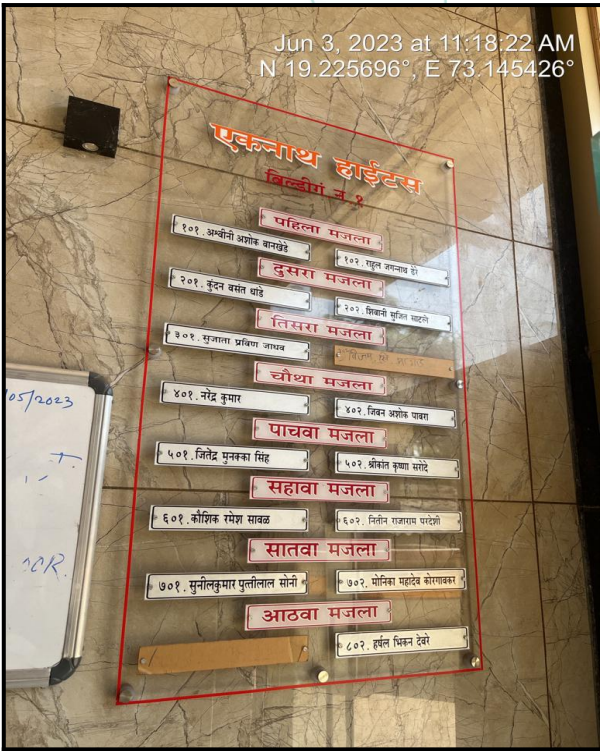 Jun 3, 2023 at 11:18:22 AM
N 19.225696°, E 73.145426°
एकनाथ हाईटस
बिल्डींग न १
पहिला मजला
१०१. अश्वीनी अशोक वानखेडे
१०२. राहुल जगन्नाथ ढेरे
दुसरा मजला
२०१. कुंदन वसंत धांडे
२०२. शिवानी सुजित साटले
तिसरा मजला
३०१. सुजाता प्रविण जाधव
चौथा मजला
४०१. नरेंद्र कुमार
४०२. जिवन अशोक पावरा
पाचवा मजला
५०१. जितेंद्र मुनक्का सिंह
५०२. श्रीकांत कृष्णा सरोदे
सहावा मजला
६०१. कौशिक रमेश सावळ
६०२. नितीन राजाराम परदेशी
सातवा मजला
७०१. सुनीलकुमार पुत्तीलाल सोनी
७०२. मोनिका महादेव कोरगावकर
आठवा मजला
८०२. हर्षल भिकन देवरे
05/2023